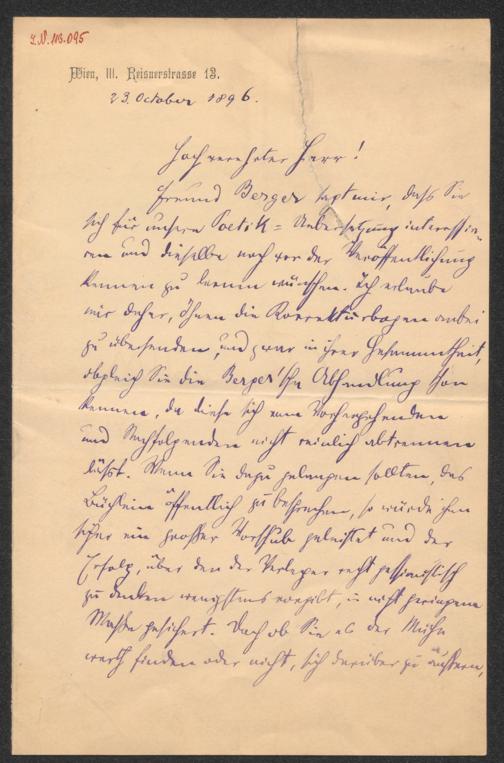 I.N. 113.095
Wien, III. Reisnerstrasse 13.
23. October 1896.
Hochverehrter Herr!
Freund Berger sagt mir, dass Sie
sich für unsere Poetik-Uebersetzung interessi-
ren und dieselbe noch vor der Veröffentlichung
kennen zu lernen wünschen. Ich erlaube
mir daher, Ihnen die Korrekturbogen anbei
zu übersenden, und zwar in ihrer Gesammtheit,
obgleich Sie die Berger'sche Abhandlung schon
kennen, da diese sich vom Vorhergehenden
und Nachfolgenden nicht reinlich abtrennen
lässt. Wenn Sie dazu gelangen sollten, das
Büchlein öffentlich zu besprechen, so würde ihm
sicher ein grosser Vorschub geleistet und der
Erfolg, über den der Verleger recht pessimistisch
zu denken wenigstens vorgibt, in nicht geringem
Masse gesichert. Doch ob Sie es der Mühe
werth finden oder nicht, sich darüber zu äussern,